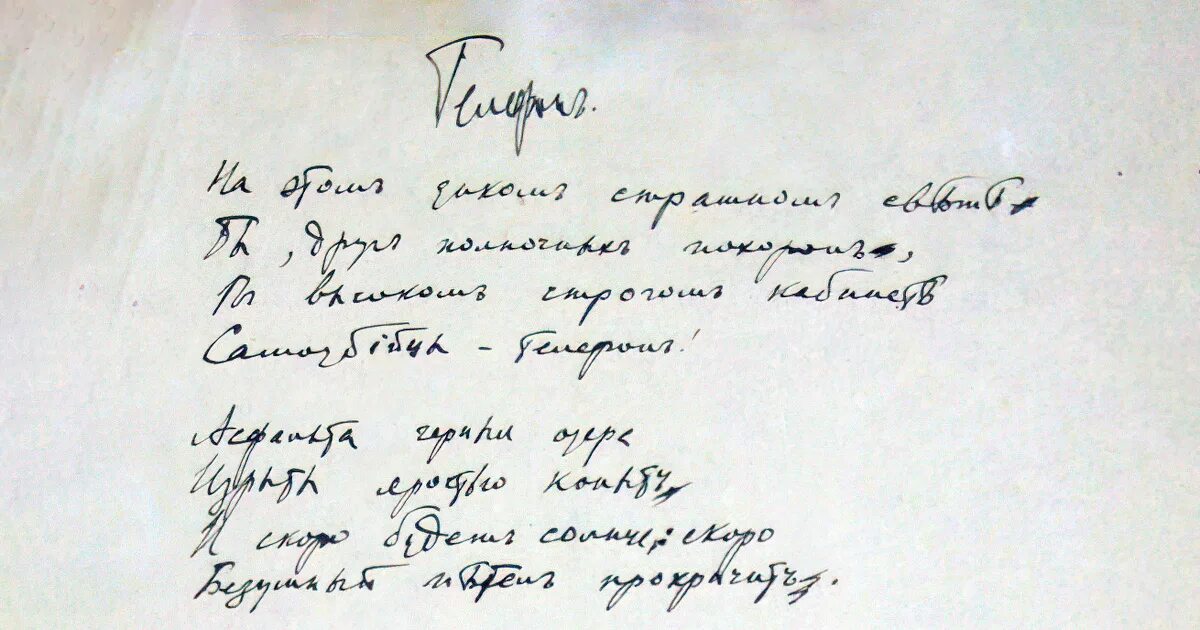 Телефонъ.
На этомъ дикомъ страшномъ свѣтѣ
Ты, другъ полночныхъ похоронъ,
Въ высокомъ строгомъ кабинетѣ
Самоубійцы – телефонъ!
Асфальта черныя озера
Изрыты яростью копытъ,
И скоро будетъ солнце: скоро
Безумный пѣтелъ прокричитъ.